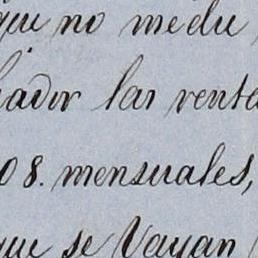 que no me du
hador las venta
08. mensuales,
que se Vayan